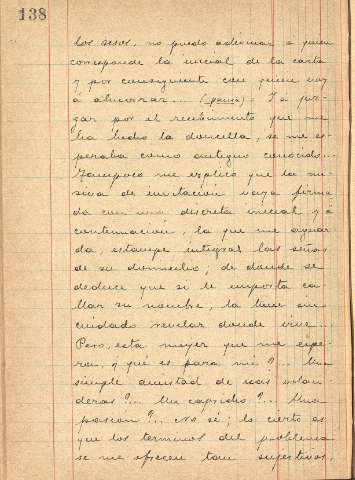 138
los sesos, no puedo adivinar a quien
corresponde la inicial de la carta
y por consiguiente con quien voy
á almorzar... (pausa). Y a juz-
gar por el recibimiento que me
ha hecho la doncella, se me es-
peraba como antiguo conocido...
Tampoco me explico que la mi-
siva de invitación vaya firma-
da con una discreta inicial y á
continuación, la que me aguar-
da, estampe integras las señas
de su domicilio; de donde se
deduce que si le importa ca-
llar su nombre, la tiene sin
cuidado revelar donde vive...
Pero, esta mujer que me espe-
ra, ¿qué es para mí?... Una
simple amistad de esas volan-
deras?... Un capricho?... Una
pasion?.. No sé; lo cierto es
que los terminos del problema
se me ofrecen tan sugestivos,